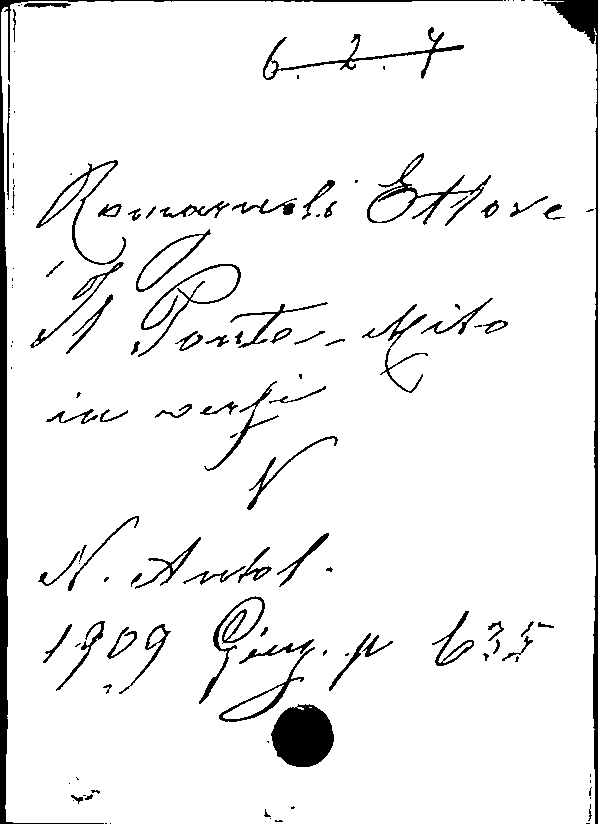 6.2.7
Romagnoli Ettore
Il Ponte - Mito
in versi
N
N. Antol.
1909 Giug. p 635